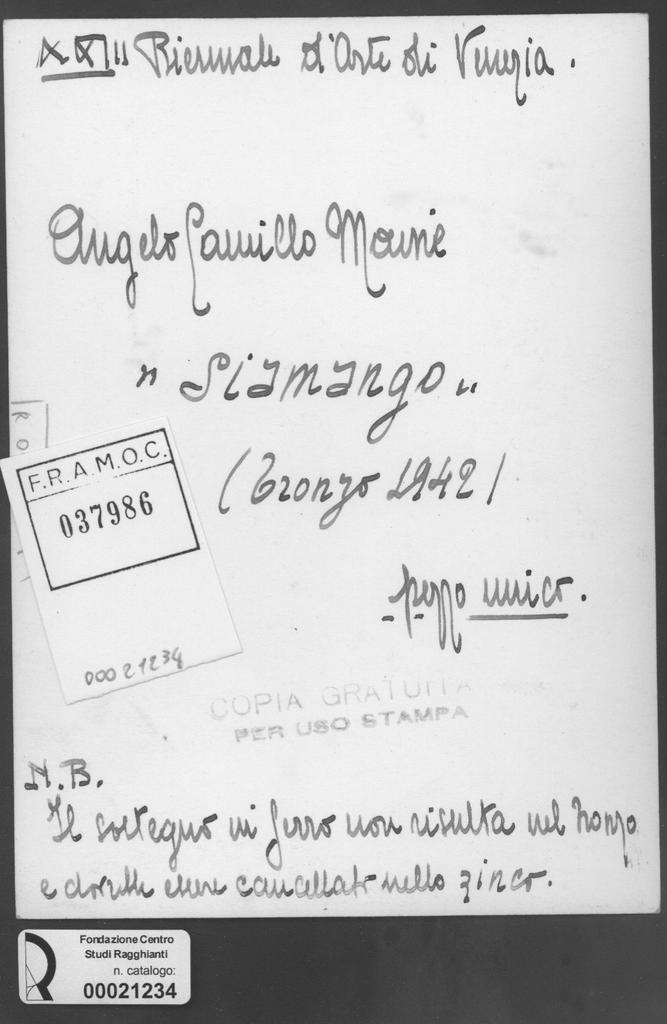 XXII Biennale d'Arte di Venezia.
Angelo Camillo Maine
"Siamango"
(bronzo 1942)
pezzo unico.
R O
F.R.A.M.O.C.
037986
00021234
COPIA GRATUITA
PER USO STAMPA
N.B.
Il sostegno in ferro non risulta nel bronzo
e dovrebbe essere cancellato nello zinco.
Fondazione Centro
Studi Ragghianti
n. catalogo:
00021234